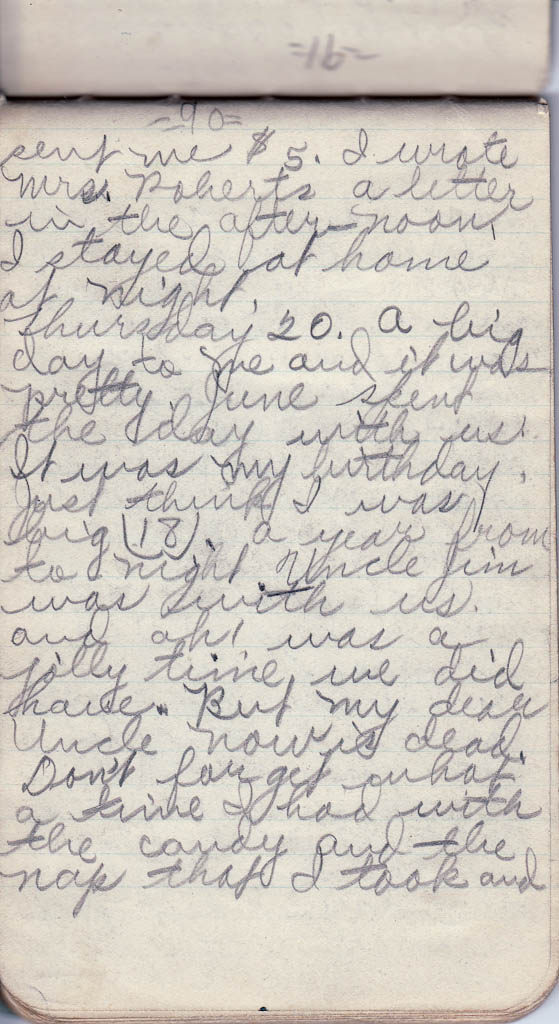 =16=
=90=
sent me $5. I wrote
Mrs. Roberts a letter
in the after-noon.
I stayed at home
at night.
Thursday 20. A big
day to me and it was
pretty. June spent
the day with us.
It was my birthday.
Just think I was
big (18). a year from
to night Uncle Jim
was with us.
and oh! was a
jolly time we did
have. But my dear
Uncle now is dead.
Don't forget what
a time I had with
the candy and the
nap that I took and